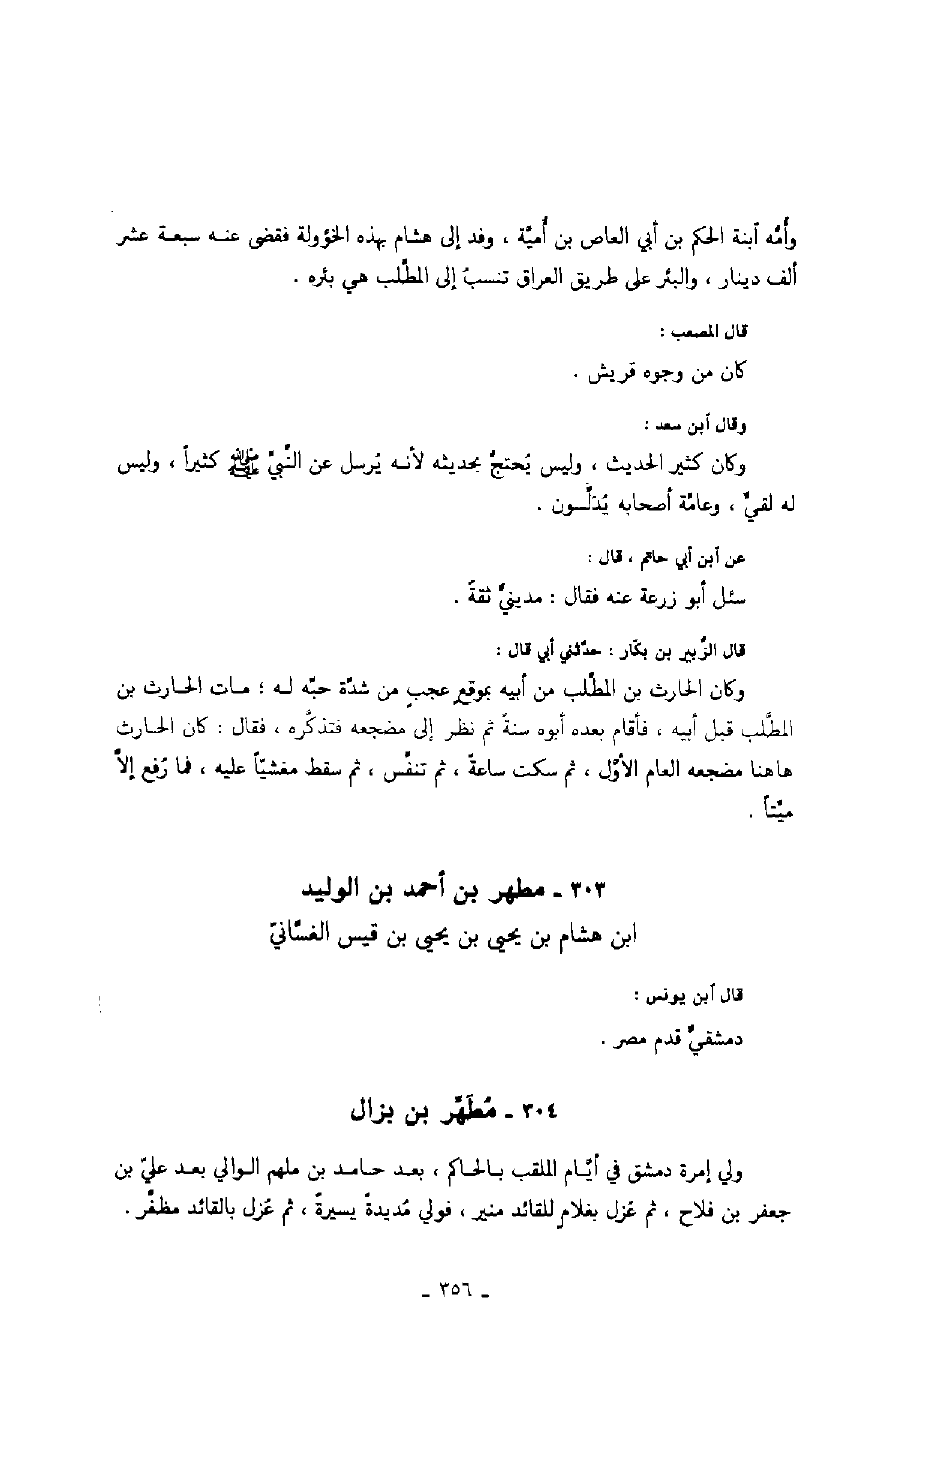 وأُمّه آبنة الحكم بن أبي العاص بن أُميّة ، وفد إلى هشام بهذه الخؤولة فقضى عنه سبعة عشر
ألف دينار ، والبئر على طريق العراق تنسبُ إلى المطّلب هي بئره .
قال المصعب :
كان من وجوه قريش .
وقال آبن سعد :
وكان كثير الحديث ، وليس يُحتجّ بحديثه لأنه يُرسل عن النَّبيّ ﷺ كثيراً ، وليس
له لقيٌّ ، وعامّة أصحابه يُدلِّسون .
عن آبن أبي حاتم ، قال :
سئل أبو زرعة عنه فقال : مدينيٌّ ثقةٌ .
قال الزُّبير بن بكّار : حدّثني أبي قال :
وكان الحارث بن المطّلب من أبيه بموقعٍ عجبٍ من شدّة حبّه له ؛ مات الحارث بن
المطَّلب قبل أبيه ، فأقام بعده أبوه سنةً ثم نظر إلى مضجعه فتذكَّره ، فقال : كان الحارث
هاهنا مضجعه العام الأوّل ، ثم سكت ساعةً ، ثم تنفّس ، ثم سقط مغشيّاً عليه ، فما رُفع إلاّ
ميّتاً .
٣٠٣ ـ مطهر بن أحمد بن الوليد
ابن هشام بن يحيى بن يحيى بن قيس الغسّانيّ
قال آبن يونس :
دمشقيٌّ قدم مصر .
٣٠٤ ـ مُطَهَّر بن بزال
ولي إمرة دمشق في أيّام الملقب بالحاكم ، بعد حامد بن ملهم الوالي بعد عليّ بن
جعفر بن فلاح ، ثم عُزل بغلامٍ للقائد منير ، فولي مُديدةً يسيرةً ، ثم عُزل بالقائد مظفّر .
ـ ٣٥٦ ـ